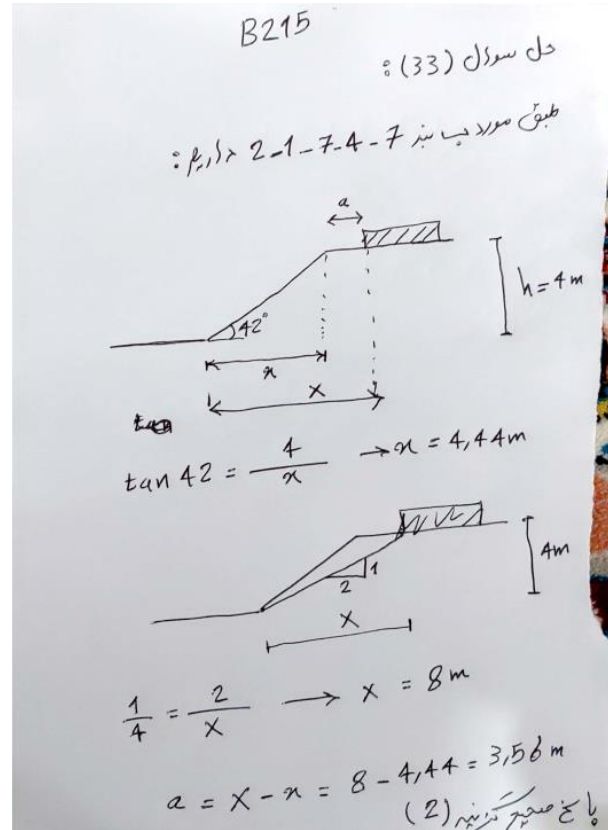 B215
حل سوال (33):
طبق مورد ب بند 7-4-7-1-2 داریم:
a
h = 4 m
42°
x
X
tan 42 = 4/x → x = 4,44 m
1
2
4m
X
1/4 = 2/X → X = 8 m
a = X - x = 8 - 4,44 = 3,56 m
پاسخ صحیح گزینه (2)